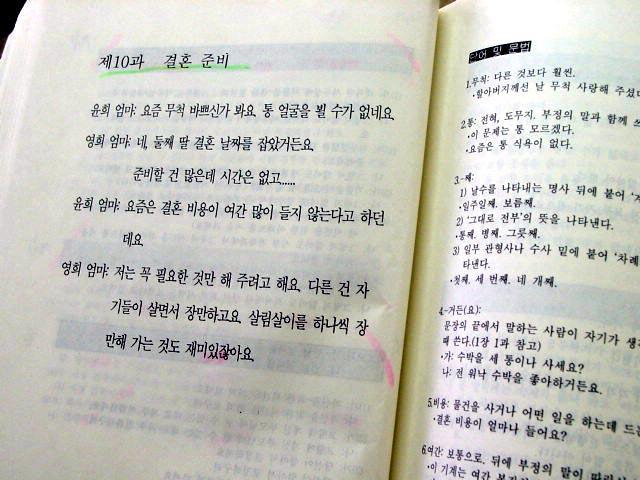 제10과 결혼 준비
윤희 엄마: 요즘 무척 바쁘신가 봐요. 통 얼굴을 뵐 수가 없네요.
영희 엄마: 네, 둘째 딸 결혼 날짜를 잡았거든요.
준비할 건 많은데 시간은 없고......
윤희 엄마: 요즘은 결혼 비용이 여간 많이 들지 않는다고 하던
데요.
영희 엄마: 저는 꼭 필요한 것만 해 주려고 해요. 다른 건 자
기들이 살면서 장만하고요. 살림살이를 하나씩 장
만해 가는 것도 재미있잖아요.
단어 및 문법
1.무척: 다른 것보다 훨씬.
•할아버지께선 날 무척 사랑해 주셨
2.통: 전혀, 도무지. 부정의 말과 함께 쓰
•이 문제는 통 모르겠다.
•요즘은 통 식욕이 없다.
3.-째:
1) 날수를 나타내는 명사 뒤에 붙어
•일주일째. 보름째.
2) '그대로 전부'의 뜻을 나타낸다.
•통째. 병째. 그릇째.
3) 일부 관형사나 수사 밑에 붙어 '차례
타낸다.
•첫째. 세 번째. 네 개째.
4.-거든(요):
문장의 끝에서 말하는 사람이 자기가
때 쓴다.(1장 1과 참고)
•가: 수박을 세 통이나 사세요?
나: 전 워낙 수박을 좋아하거든요.
5.비용: 물건을 사거나 어떤 일을 하는데 드
•결혼 비용이 얼마나 들어요?
6.여간: 보통으로. 뒤에 부정의 말이
•이 기계는 여간